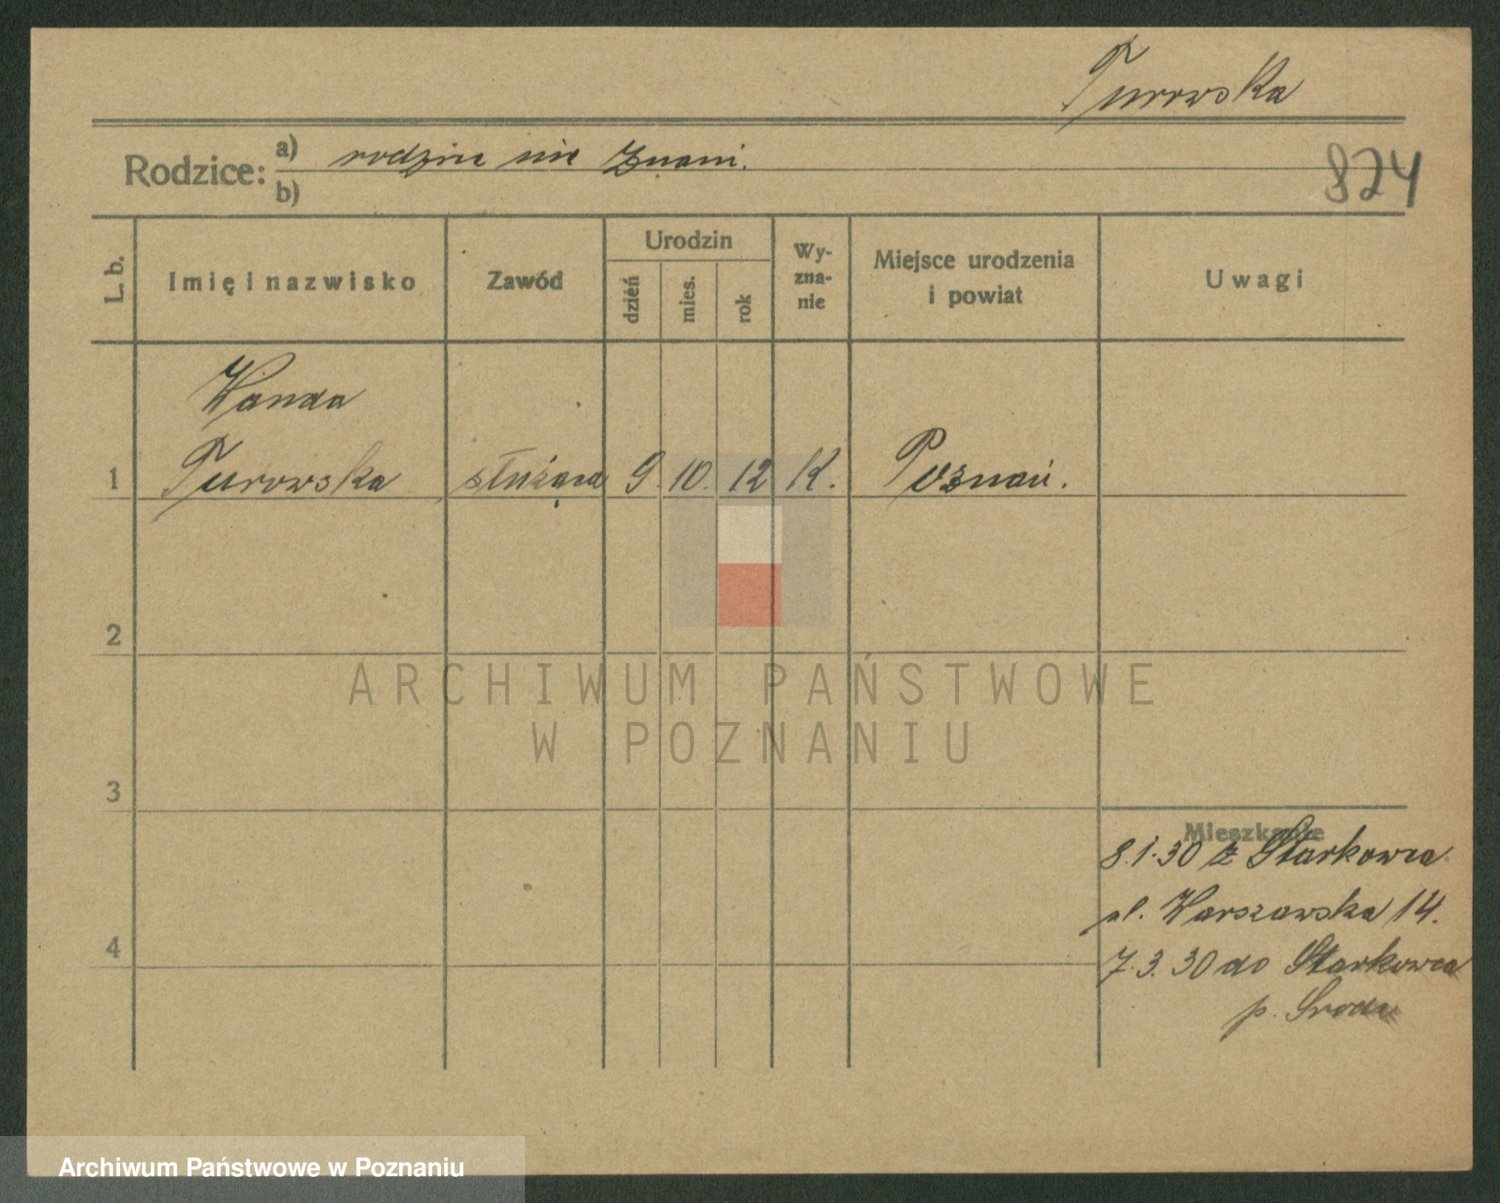 Turowska
Rodzice: a) rodzice nie znani.
b)
824
L. b. Imię i nazwisko Zawód Urodzin dzień mies. rok Wy-zna-nie Miejsce urodzenia i powiat Uwagi
Wanda
1 Turowska służąca 9. 10. 12 K. Poznań.
2
ARCHIWUM PAŃSTWOWE
W POZNANIU
3
Mieszkanie
8.1.30 z Starkowca
ul. Warszawska 14.
4
7.3.30 do Starkowca
p. Sroda
Archiwum Państwowe w Poznaniu